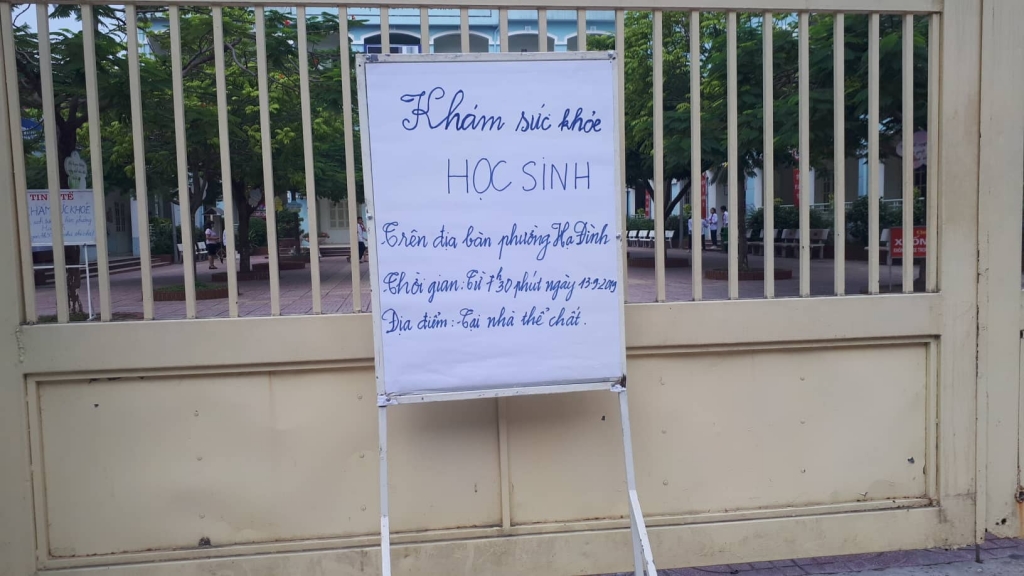 Khám sức khỏe
HỌC SINH
Trên địa bàn phường Hạ Đình
Thời gian: Từ 7h30 phút ngày 13-9-2019
Địa điểm: Tại nhà thể chất.
KHÁM SỨC KHỎE